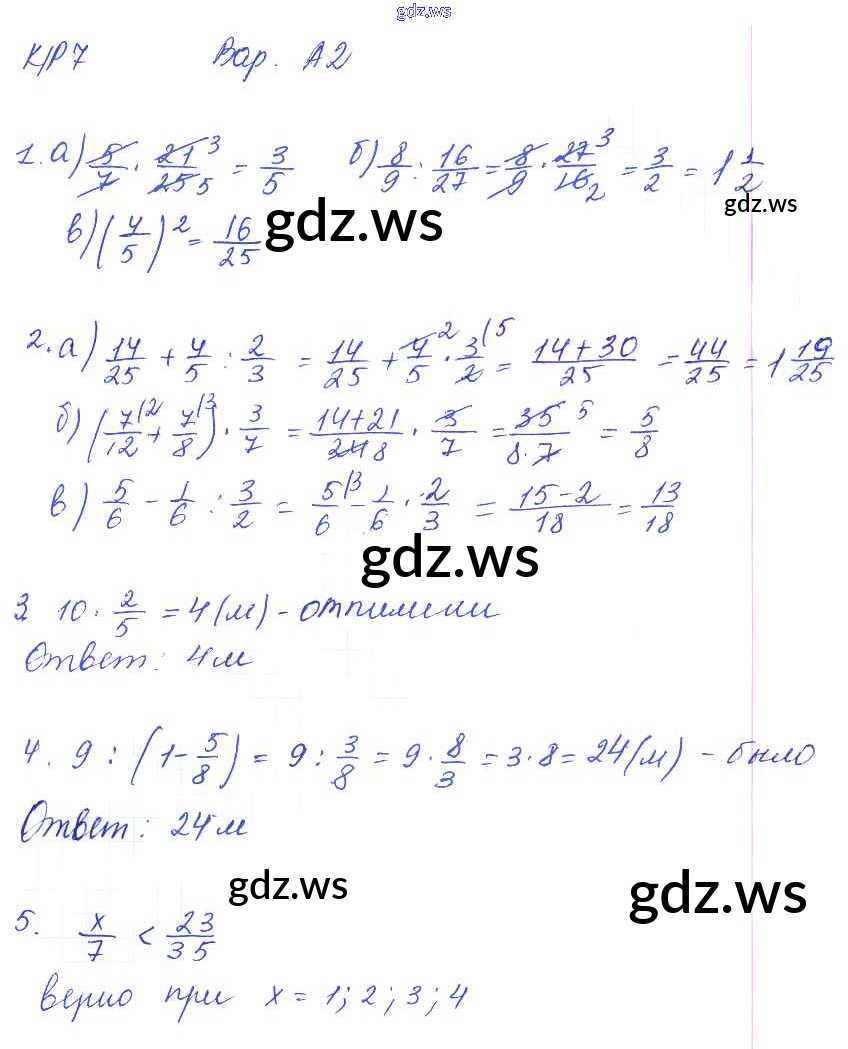 gdz.ws
К/Р 7 Вар. А2
1. а) 5/7 · 21/25 = 3/5 б) 8/9 : 16/27 = 8/9 · 27/16 = 3/2 = 1 1/2
gdz.ws
в) (4/5)² = 16/25 gdz.ws
2. а) 14/25 + 4/5 : 2/3 = 14/25 + 4/5 · 3/2 = 14+30/25 = 44/25 = 1 19/25
б) (7/12 + 7/8) · 3/7 = 14+21/24 · 3/7 = 35/8·7 = 5/8
в) 5/6 - 1/6 : 3/2 = 5/6 - 1/6 · 2/3 = 15-2/18 = 13/18
gdz.ws
3 10 · 2/5 = 4 (м) - отпилили
Ответ: 4 м
4. 9 : (1 - 5/8) = 9 : 3/8 = 9 · 8/3 = 3 · 8 = 24 (м) - было
Ответ: 24 м
gdz.ws gdz.ws
5. x/7 < 23/35
верно при x = 1; 2; 3; 4